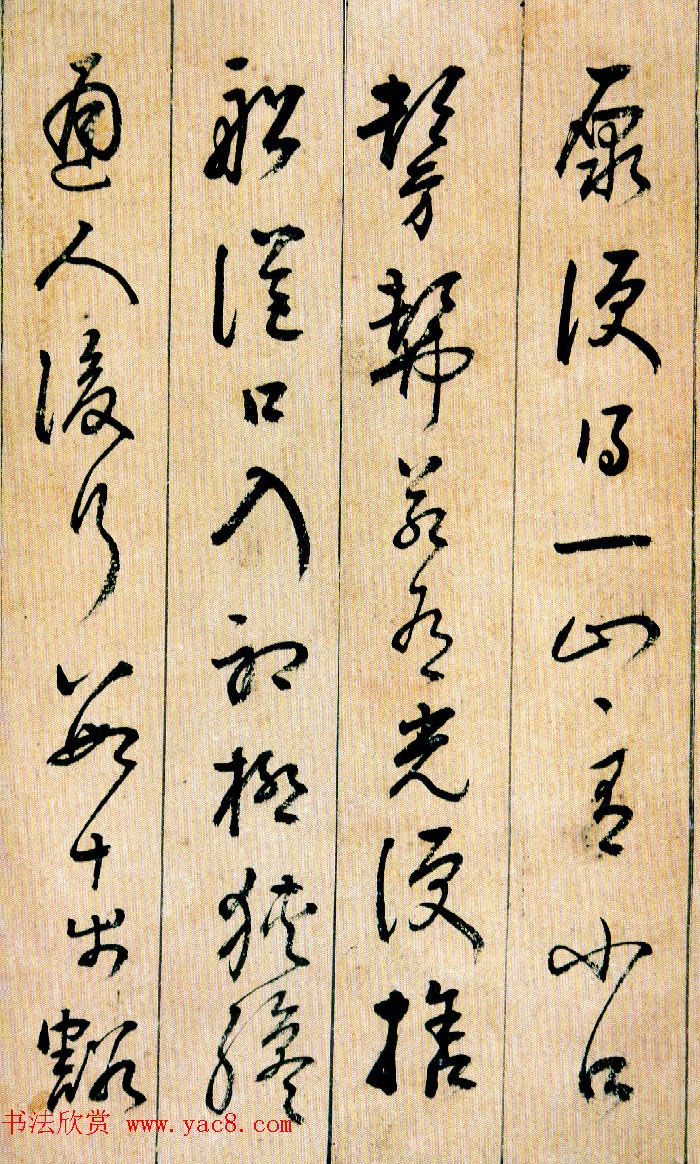 原便得一山々有小口
髣髴若有光便捨
船從口入初極狹纔
通人復行數十步豁
书法欣赏 www.yac8.com